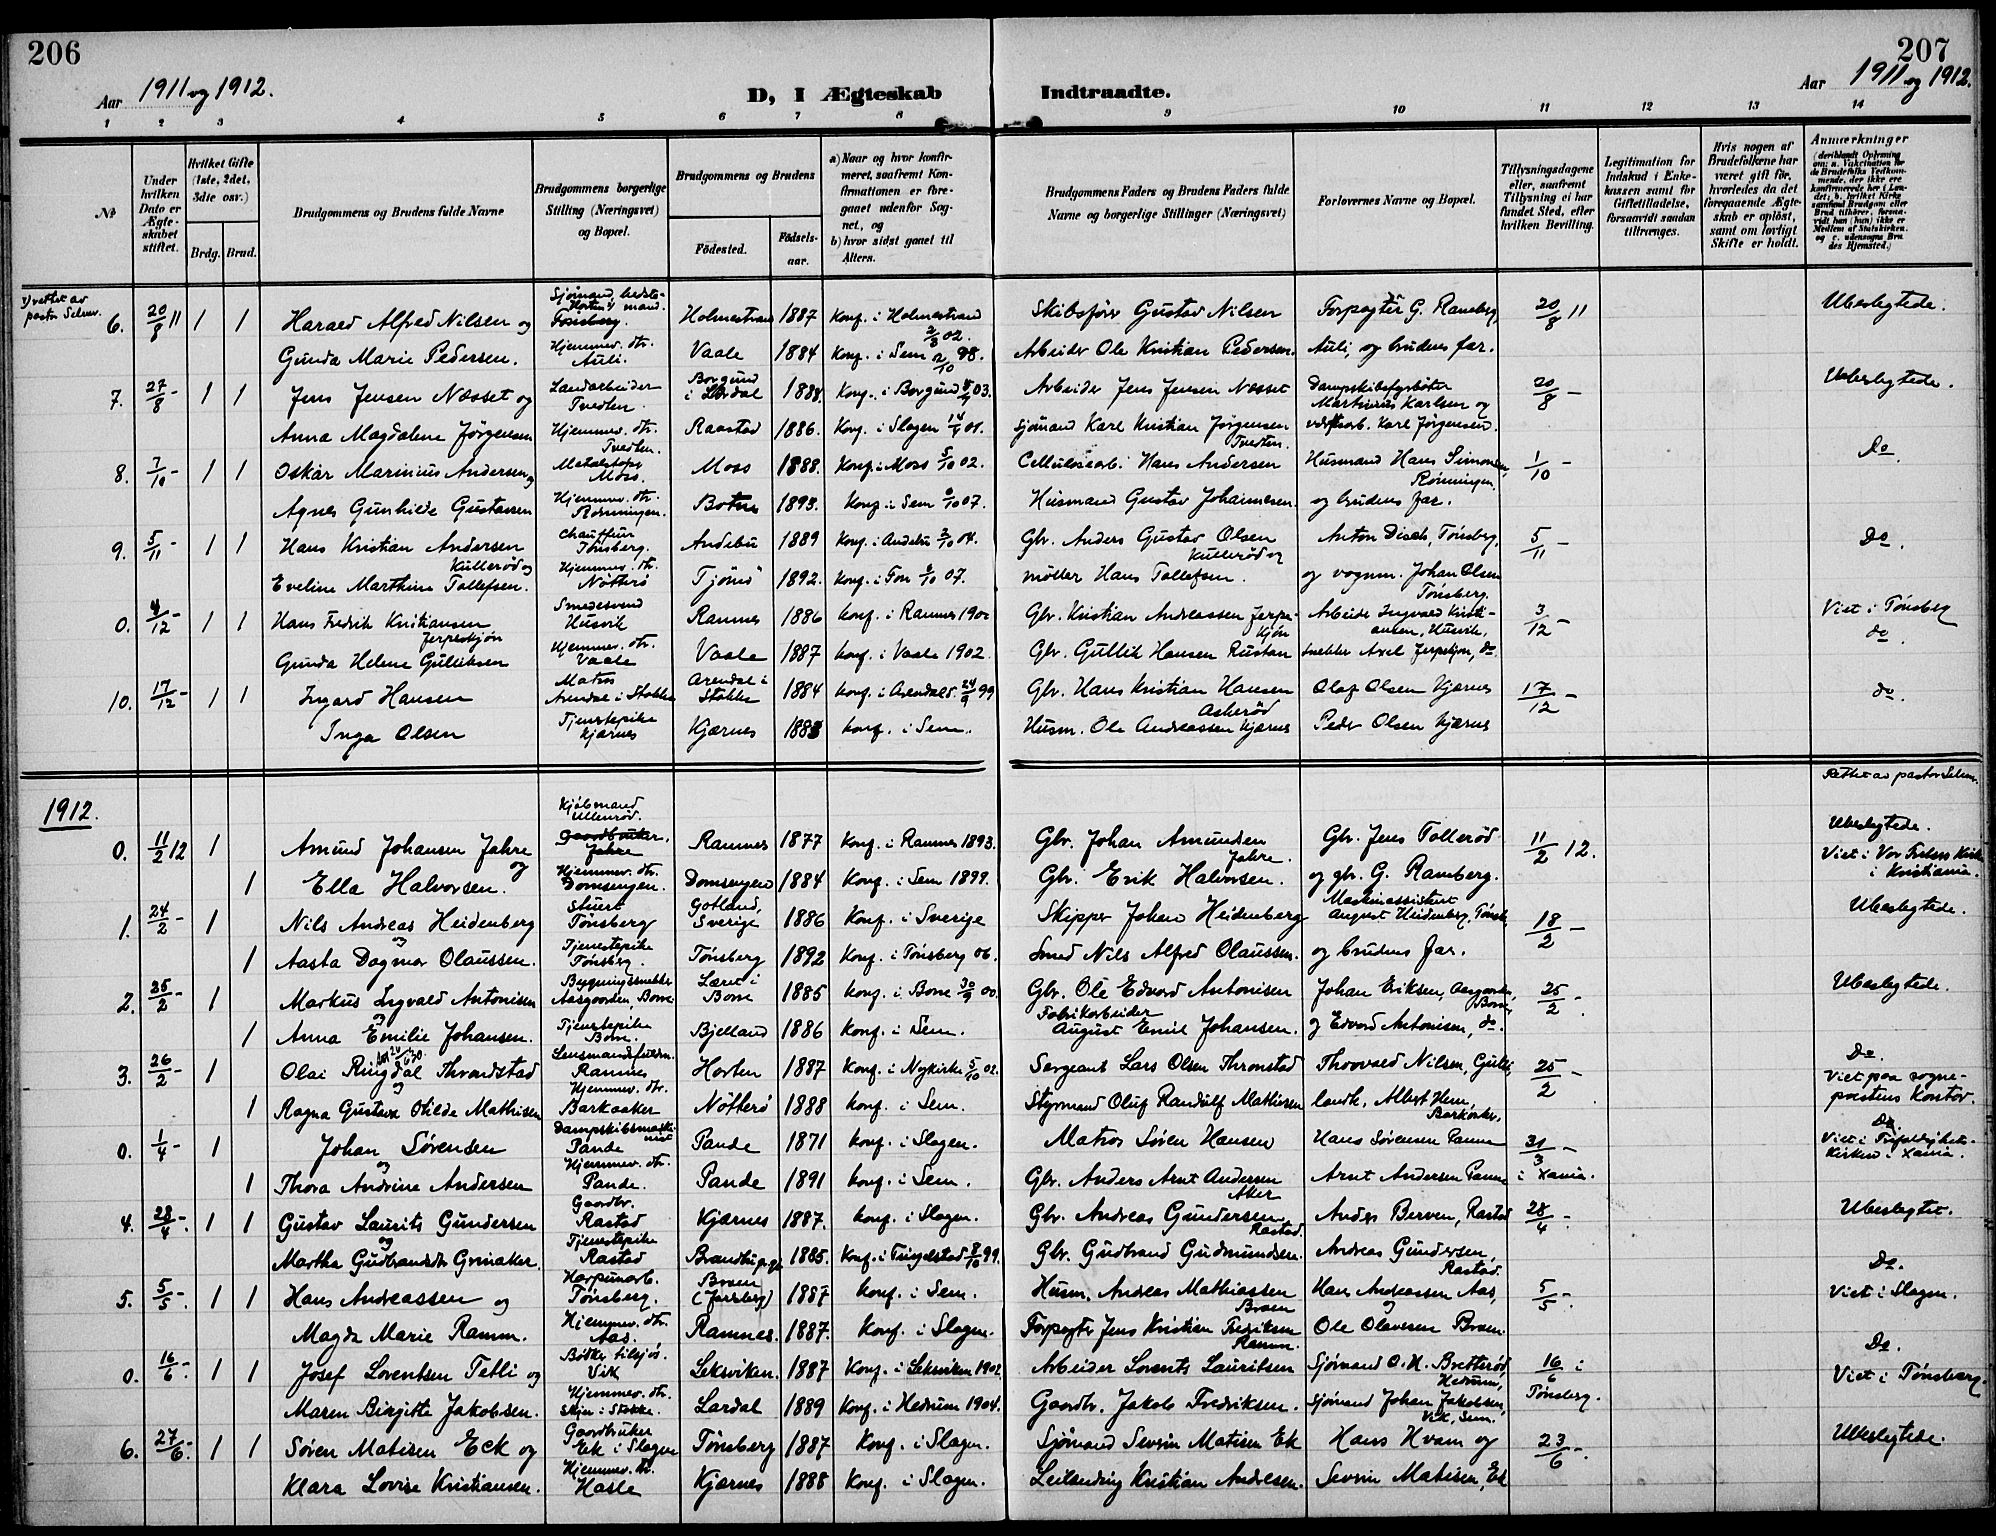 206
207
Aar 1911 og 1912.
D, I Ægteskab Indtraadte.
Aar 1911 og 1912.
1 2 3 4 5 6 7 8 9 10 11 12 13 14
No.
Under hvilken Dato er Ægteskabet stiftet.
Hvilket Gifte (1ste, 2det, 3die osv.)
Brdg. Brud.
Brudgommens og Brudens fulde Navne
Brudgommens borgerlige Stilling (Næringsvei) og Bopæl.
Brudgommens og Brudens
Fødested. Fødselsaar.
a) Naar og hvor konfirmeret, saafremt Konfirmationen er foregaaet udenfor Sognet, og
b) hvor sidst gaaet til Alters.
Brudgommens Faders og Brudens Faders fulde Navne og borgerlige Stillinger (Næringsvei)
Forlovernes Navne og Bopæl.
Tillysningsdagene eller, saafremt Tillysning ei har fundet Sted, efter hvilken Bevilling.
Legitimation for Indskud i Enkekassen samt for Giftetilladelse, forsaavidt saadan tiltrænges.
Hvis nogen af Brudefolkene har været gift før, hvorledes da det foregaaende Ægteskab er opløst, samt om lovligt Skifte er holdt.
Anmærkninger
6. 20/8 11 1 1 Harald Alfred Nilsen og Sjømand, Horten Tønsberg. Holmestrand 1887 Konf. i Holmestrand 2/3 02. Skibsfører Gustav Nilsen Forpagter G. Ramberg, 20/8 11 Ubeslegtede.
Gunda Marie Pedersen. Hjemmev. dtr. Auli. Vaale 1884 Konf. i Sem 2/10 98. Arbeider Ole Kristian Pedersen. Auli, og brudens far.
7. 27/8 - 1 1 Jens Jensen Næsset og Landarbeider Tvedten. Borgund i Lærdal 1888. Konf. i Borgund 03. Arbeider Jens Jensen Næsset Dampskibsfyrbøter Martinius Karlsen og 20/8 - Ubeslegtede.
Anna Magdalene Jørgensen Hjemmev. dtr. Tvedten. Raastad 1886. Konf. i Slagen 01. Sjømand Karl Kristian Jørgensen Tvedten. Karl Jørgensen.
8. 7/10 - 1 1 Oskar Marinius Andersen og Metalstøper Moss. Moss 1888. Konf. i Moss 5/10 02. Cellulosearb. Hans Andersen Husmand Hans Simonsen, Rønningen, 1/10 - Do.
Agnes Gunhilde Gustavsen Hjemmev. dtr. Rønningen. Botne 1893. Konf. i Sem 6/10 07. Husmand Gustav Johannesen. og brudens far.
9. 5/11 - 1 1 Hans Kristian Andersen Kullerød og Chauffeur Tønsberg. Andebu 1889 Konf. i Andebu 2/10 04. Gbr. Anders Gustav Olsen Kullerød og Anton Disch, Tønsberg, 5/11 - Do.
Eveline Marthine Tollefsen. Hjemmev. dtr. Nøtterø Tjømø 1892. Konf. i Fon 6/10 07. møller Hans Tollefsen. og vognm. Johan Olsen Tønsberg.
0. 4/12 - 1 1 Hans Fredrik Kristiansen Jerpeskjøn Smedesvend Husvik Ramnes 1886 Konf. i Ramnes 1900 Gbr. Kristian Andreassen Jerpeskjøn Arbeider Ingvald Kristiansen, Husvik, 3/12 - Viet i Tønsberg do.
Gunda Helene Gulliksen Hjemmev. dtr. Vaale Vaale 1887 Konf. i Vaale 1902. Gbr. Gullik Hansen Rustan Snekker Axel Jerpekjøn, do.
10. 17/12 - 1 1 Ingard Hansen Matros Arendal i Stokke Arendal i Stokke 1884 Konf. i Arendals. 24/9 99 Gbr. Hans Kristian Hansen Askerød Olaf Olsen Kjærnes 17/12 - do.
Inga Olsen Tjenestepike Kjærnes Kjærnes 1883 Konf. i Sem. Husm. Ole Andreassen Kjærnes Peder Olsen Kjærnes
1912.
0. 11/2 12 1 Amund Johansen Jahre og Kjøbmand Ullenrød. Gaardbruker, Jahre Ramnes 1877 Konf. i Ramnes 1893. Gbr. Johan Amundsen Jahre. Gbr. Jens Tollerød 11/2 12. Ubeslegtede. Viet i Vor Frelsers Kirke i Kristiania.
1 Ella Halvorsen. Hjemmev. dtr. Domsengen. Domsengen 1884 Konf. i Sem 1899. Gbr. Erik Halvorsen. og gbr. G. Ramberg.
1. 24/2 - 1 Nils Andreas Heidenberg og Stuert Tønsberg Gotland, Sverige 1886 Konf. i Sverige Skipper Johan Heidenberg Maskinassistent August Heidenberg, Tønsb. 18/2 - Ubeslegtede.
1 Aasta Dagmar Olaussen. Tjenestepike Tønsberg. Tønsberg 1892 Konf. i Tønsberg 06. Smed Nils Alfred Olaussen. og brudens far.
2. 25/2 - 1 Markus Ingvald Antonisen og Bygningssnekker Aasgaarden Borre Borre 1885 Konf. i Borre 30/9 00. Gbr. Ole Edvard Antonisen Johan Eriksen, Aasgaarden, Borre, 25/2 - Ubeslegtede.
1 Anna Emilie Johansen. Tjenestepike Borre. Bjelland 1886 Konf. i Sem. Fabrikarbeider August Emil Johansen. og Edvard Antonisen, do.
3. 26/2 - 1 Olai Ringdal Throndstad og Lensmandsfuldm. Ramnes Horten 1887 Konf. i Nykirke 5/10 02. Sergeant Lars Olsen Thronstad Thorvald Nilsen, Gulli, 25/2 - Do. Viet paa sogneprestens Kontor.
1 Ragna Gustava Otilde Mathisen Hjemmev. dtr. Barkaaker Nøtterø 1888 Konf. i Sem. Styrmand Oluf Randulf Mathisen landh. Albert Hem, Barkaaker.
0. 1/4 - 1 Johan Sørensen og Dampskibsmaskinist Pande Pande 1871 Konf. i Slagen. Matros Søren Hansen Hans Sørensen Panne 31/3 - Do. Viet i Trefoldighetskirken i Xania.
1 Thora Andrine Andersen Hjemmev. dtr. Pande. Pande 1891 Konf. i Sem. Gbr. Anders Arnt Andersen Aker Arnt Andersen Panne i Xania.
4. 28/4 - 1 1 Gustav Laurits Gundersen og Gaardbr. Rastad Kjærnes 1887. Konf. i Slagen. Gbr. Andreas Gundersen, Rastad. Anders Berven, Rastad 28/4 - Ubeslegtet.
Martha Gudbrandsdtr Grinaker. Tjenestepike Rastad 1885. Konf. i Tingelstad 8/10 99. Gbr. Gudbrand Gudmundsen. Andreas Gundersen, Rastad.
5. 5/5 - 1 1 Hans Andreassen og Harpunarb. Tønsberg. Braen (Jarlsberg) 1887 Konf. i Sem. Husm. Andreas Mathiassen Braen Hans Andreassen Aas, og 5/5 - Do. Viet i Slagen.
Magda Marie Ramm. Hjemmev. dtr. Aas. Ramnes. 1887. Konf. i Slagen. Forpagter Jens Kristian Fredriksen Ramm. Ole Olavesen Braen
0. 16/6 - 1 1 Josef Lorentsen Tetli og Bøtker tilsjøs. Vik Leksviken. 1887 Konf. i Leksviken 1902 Arbeider Lorents Lauritsen Sjømand O. H. Bretterød, Hedrum, 16/6 i Tønsberg. Do. Viet i Tønsberg.
Maren Birgitte Jakobsen. Hjemmev. dtr. Skjee i Stokke. Lardal 1889 Konf. i Hedrum 1904. Gaardbr. Jakob Fredriksen. Sjømand Johan Jakobsen, Vik, Sem.
6. 27/6 - 1 1 Søren Matisen Eck og Gaardbruker Ek i Slagen Tønsberg 1887 Konf. i Slagen. Sjømand Sevrin Matisen Ek Hans Hvam og 23/6 - Ubeslegtede.
Klara Lovise Kristiansen. Hjemmev. dtr. Hasle Kjærnes 1888 Konf. i Slagen. Leilending Kristian Andresen. Sevrin Matisen, Ek